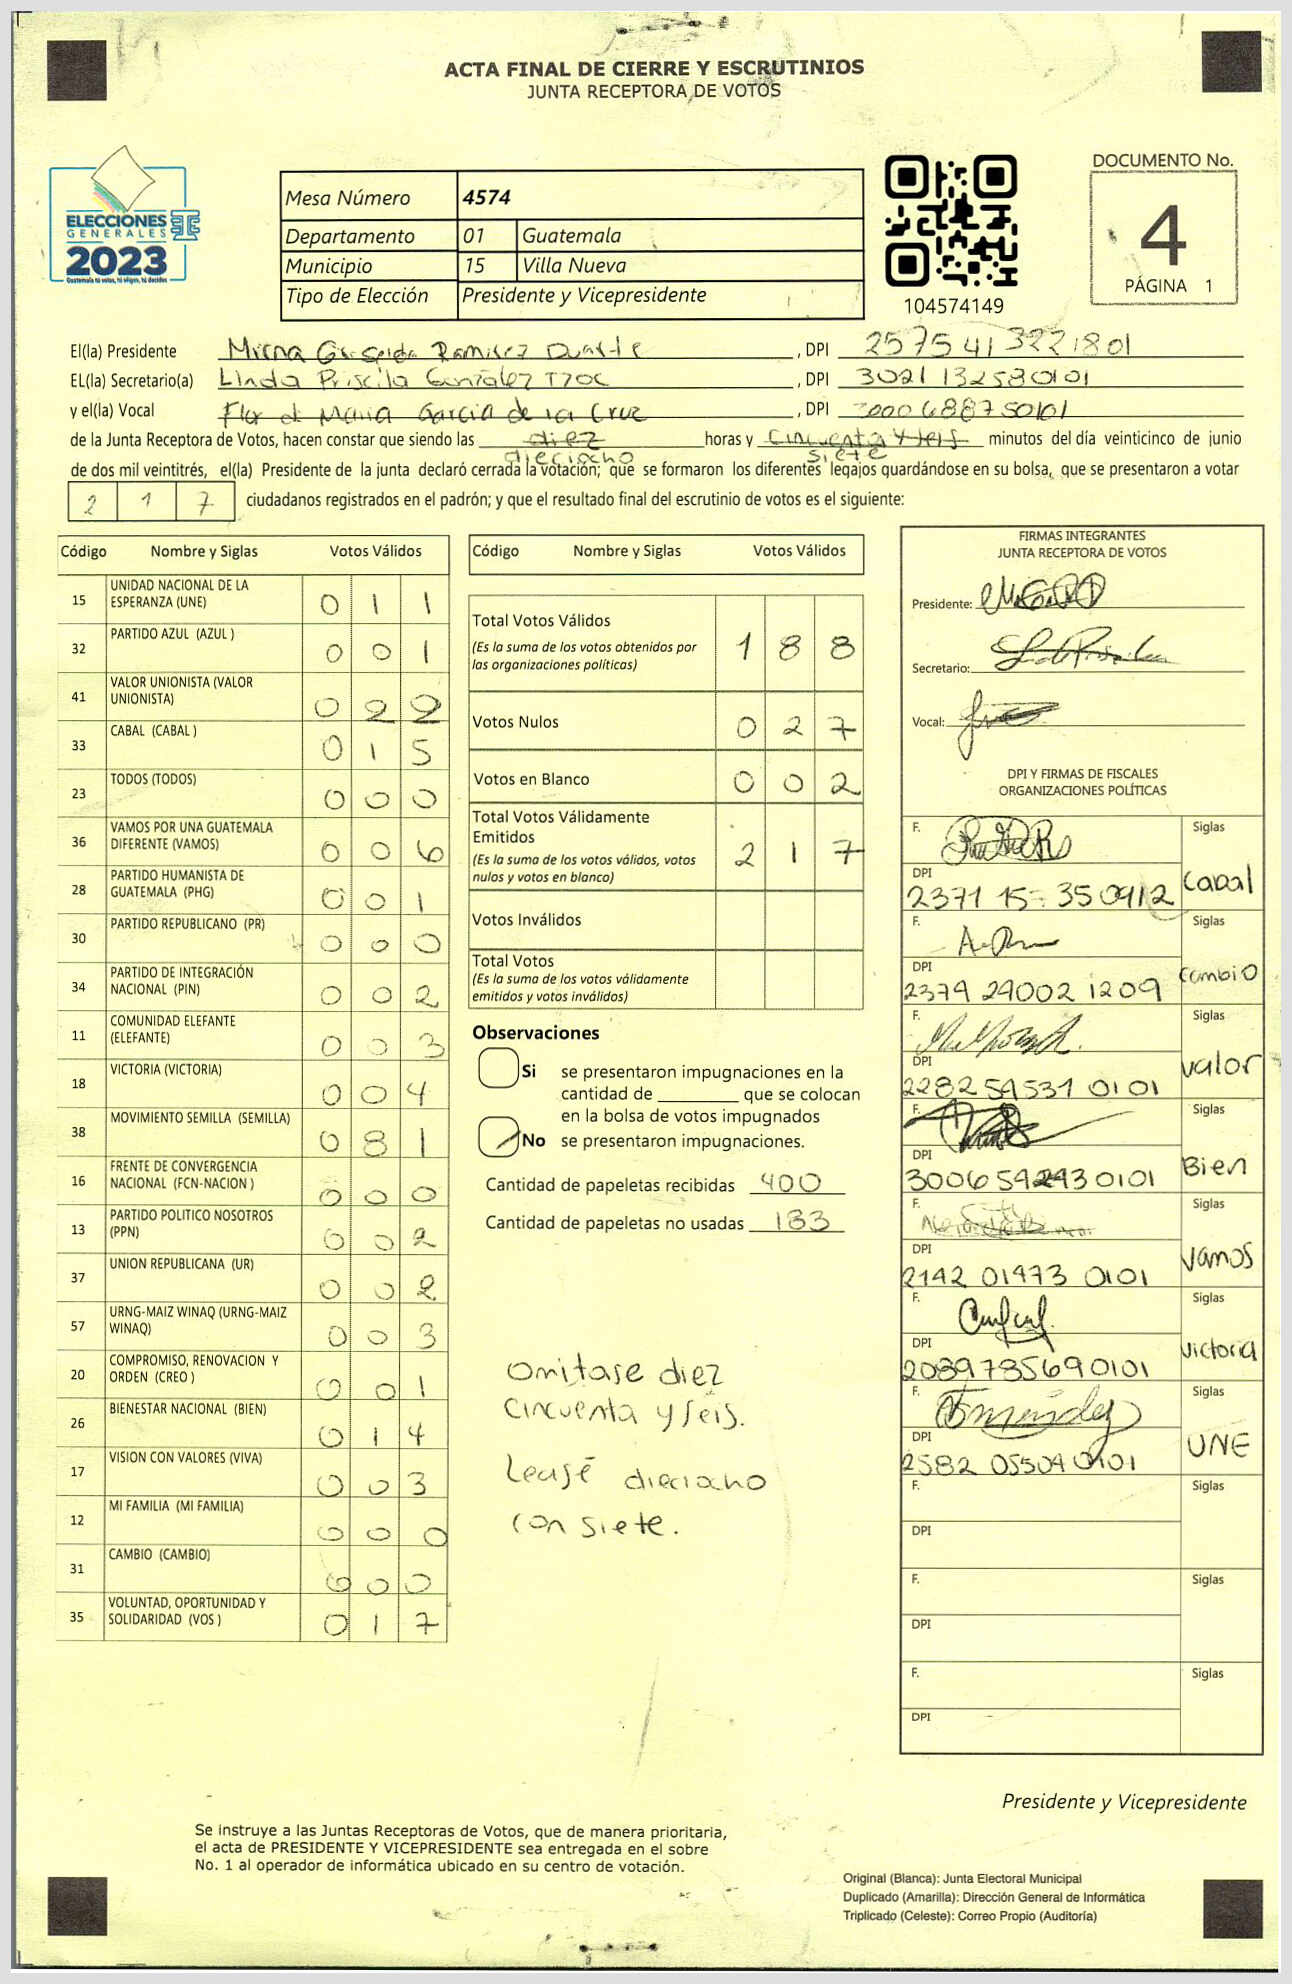 ACTA FINAL DE CIERRE Y ESCRUTINIOS
JUNTA RECEPTORA DE VOTOS
ELECCIONES
GENERALES
2023
Guatemala tú votas, tú eliges, tú decides
Mesa Número 4574
Departamento 01 Guatemala
Municipio 15 Villa Nueva
Tipo de Elección Presidente y Vicepresidente
104574149
DOCUMENTO No.
4
PÁGINA 1
El(la) Presidente Mirna Griselda Ramirez Duarte , DPI 2575 41322 1801
EL(la) Secretario(a) Linda Priscila González Tzoc , DPI 3021 132580101
y el(la) Vocal Flor de Maria Garcia de la Cruz , DPI 3000 688750101
de la Junta Receptora de Votos, hacen constar que siendo las diez horas y cincuenta y seis minutos del día veinticinco de junio
dieciocho siete
de dos mil veintitrés, el(la) Presidente de la junta declaró cerrada la votación; que se formaron los diferentes legajos guardándose en su bolsa, que se presentaron a votar
2 1 7 ciudadanos registrados en el padrón; y que el resultado final del escrutinio de votos es el siguiente:
Código Nombre y Siglas Votos Válidos
15 UNIDAD NACIONAL DE LA
ESPERANZA (UNE) 0 1 1
32 PARTIDO AZUL (AZUL ) 0 0 1
41 VALOR UNIONISTA (VALOR
UNIONISTA) 0 2 2
33 CABAL (CABAL ) 0 1 5
23 TODOS (TODOS) 0 0 0
36 VAMOS POR UNA GUATEMALA
DIFERENTE (VAMOS) 0 0 6
28 PARTIDO HUMANISTA DE
GUATEMALA (PHG) 0 0 1
30 PARTIDO REPUBLICANO (PR) 0 0 0
34 PARTIDO DE INTEGRACIÓN
NACIONAL (PIN) 0 0 2
11 COMUNIDAD ELEFANTE
(ELEFANTE) 0 0 3
18 VICTORIA (VICTORIA) 0 0 4
38 MOVIMIENTO SEMILLA (SEMILLA) 0 8 1
16 FRENTE DE CONVERGENCIA
NACIONAL (FCN-NACION ) 0 0 0
13 PARTIDO POLITICO NOSOTROS
(PPN) 0 0 2
37 UNION REPUBLICANA (UR) 0 0 2
57 URNG-MAIZ WINAQ (URNG-MAIZ
WINAQ) 0 0 3
20 COMPROMISO, RENOVACION Y
ORDEN (CREO ) 0 0 1
26 BIENESTAR NACIONAL (BIEN) 0 1 4
17 VISION CON VALORES (VIVA) 0 0 3
12 MI FAMILIA (MI FAMILIA) 0 0 0
31 CAMBIO (CAMBIO) 0 0 0
35 VOLUNTAD, OPORTUNIDAD Y
SOLIDARIDAD (VOS ) 0 1 7
Código Nombre y Siglas Votos Válidos
Total Votos Válidos
(Es la suma de los votos obtenidos por
las organizaciones políticas) 1 8 8
Votos Nulos 0 2 7
Votos en Blanco 0 0 2
Total Votos Válidamente
Emitidos
(Es la suma de los votos válidos, votos
nulos y votos en blanco) 2 1 7
Votos Inválidos
Total Votos
(Es la suma de los votos válidamente
emitidos y votos inválidos)
Observaciones
Si se presentaron impugnaciones en la
cantidad de ________ que se colocan
en la bolsa de votos impugnados
No se presentaron impugnaciones.
Cantidad de papeletas recibidas 400
Cantidad de papeletas no usadas 183
Omitase diez
cincuenta y seis.
Leasé dieciocho
con siete.
FIRMAS INTEGRANTES
JUNTA RECEPTORA DE VOTOS
Presidente:
Secretario:
Vocal:
DPI Y FIRMAS DE FISCALES
ORGANIZACIONES POLÍTICAS
F. Siglas
DPI Cabal
2371 15 350912
F. Siglas
DPI Cambio
2379 29002 1209
F. Siglas
DPI Valor
2282 54531 0101
F. Siglas
DPI Bien
3006 592930101
F. Siglas
DPI Vamos
2142 01473 0101
F. Siglas
DPI Victoria
2089785690101
F. Siglas
DPI UNE
2582 05504 0101
F. Siglas
DPI
F. Siglas
DPI
F. Siglas
DPI
Presidente y Vicepresidente
Se instruye a las Juntas Receptoras de Votos, que de manera prioritaria,
el acta de PRESIDENTE Y VICEPRESIDENTE sea entregada en el sobre
No. 1 al operador de informática ubicado en su centro de votación.
Original (Blanca): Junta Electoral Municipal
Duplicado (Amarilla): Dirección General de Informática
Triplicado (Celeste): Correo Propio (Auditoría)